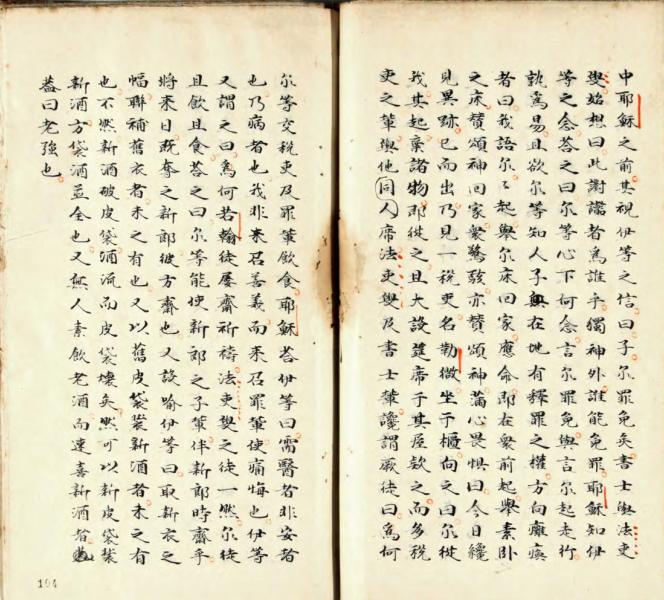 中耶穌之前其視伊等之信曰子尔罪免矣書士與法吏
與始想曰此謝讟者爲誰乎獨神外誰能免罪耶穌知伊
等之念荅之曰尔等心下何念言尔罪免與言尔起走行
孰爲易且欲尔等知人子與在地有釋罪之權方向癱瘓
者曰我語尔尔起舉尔床囘家應命即在衆前起舉素卧
之床賛頌神囘家衆驚駭亦賛頌神蒲心畏惧曰今日纔
見異跡已而出乃見一税吏名勒微坐于櫃向之曰尔從
我其起棄諸物即從之且大設筵席于其居欵之而多税
吏之輩與他同人席法吏與及書士輩讒謂厥徒曰爲何
尔等交税吏及罪輩飲食耶穌荅伊等曰需醫者非安者
也乃病者也我非来召善義而来召罪輩使痛悔也伊等
又謂之曰爲何若翰徒屡齋祈禱法吏與之徒一然尔徒
且飲且食荅之曰尔等能使新郎之子輩伴新郎時齋乎
將来日既奪之新郎彼方齋也又設喻伊等曰取新衣之
幅聯補舊衣者未之有也又以舊皮袋裝新酒者未之有
也不然新酒破皮袋酒流而皮袋壞矣然可以新皮袋裝
新酒方袋酒並全也又無人素飲老酒而速喜新酒者
葢曰老強也
194